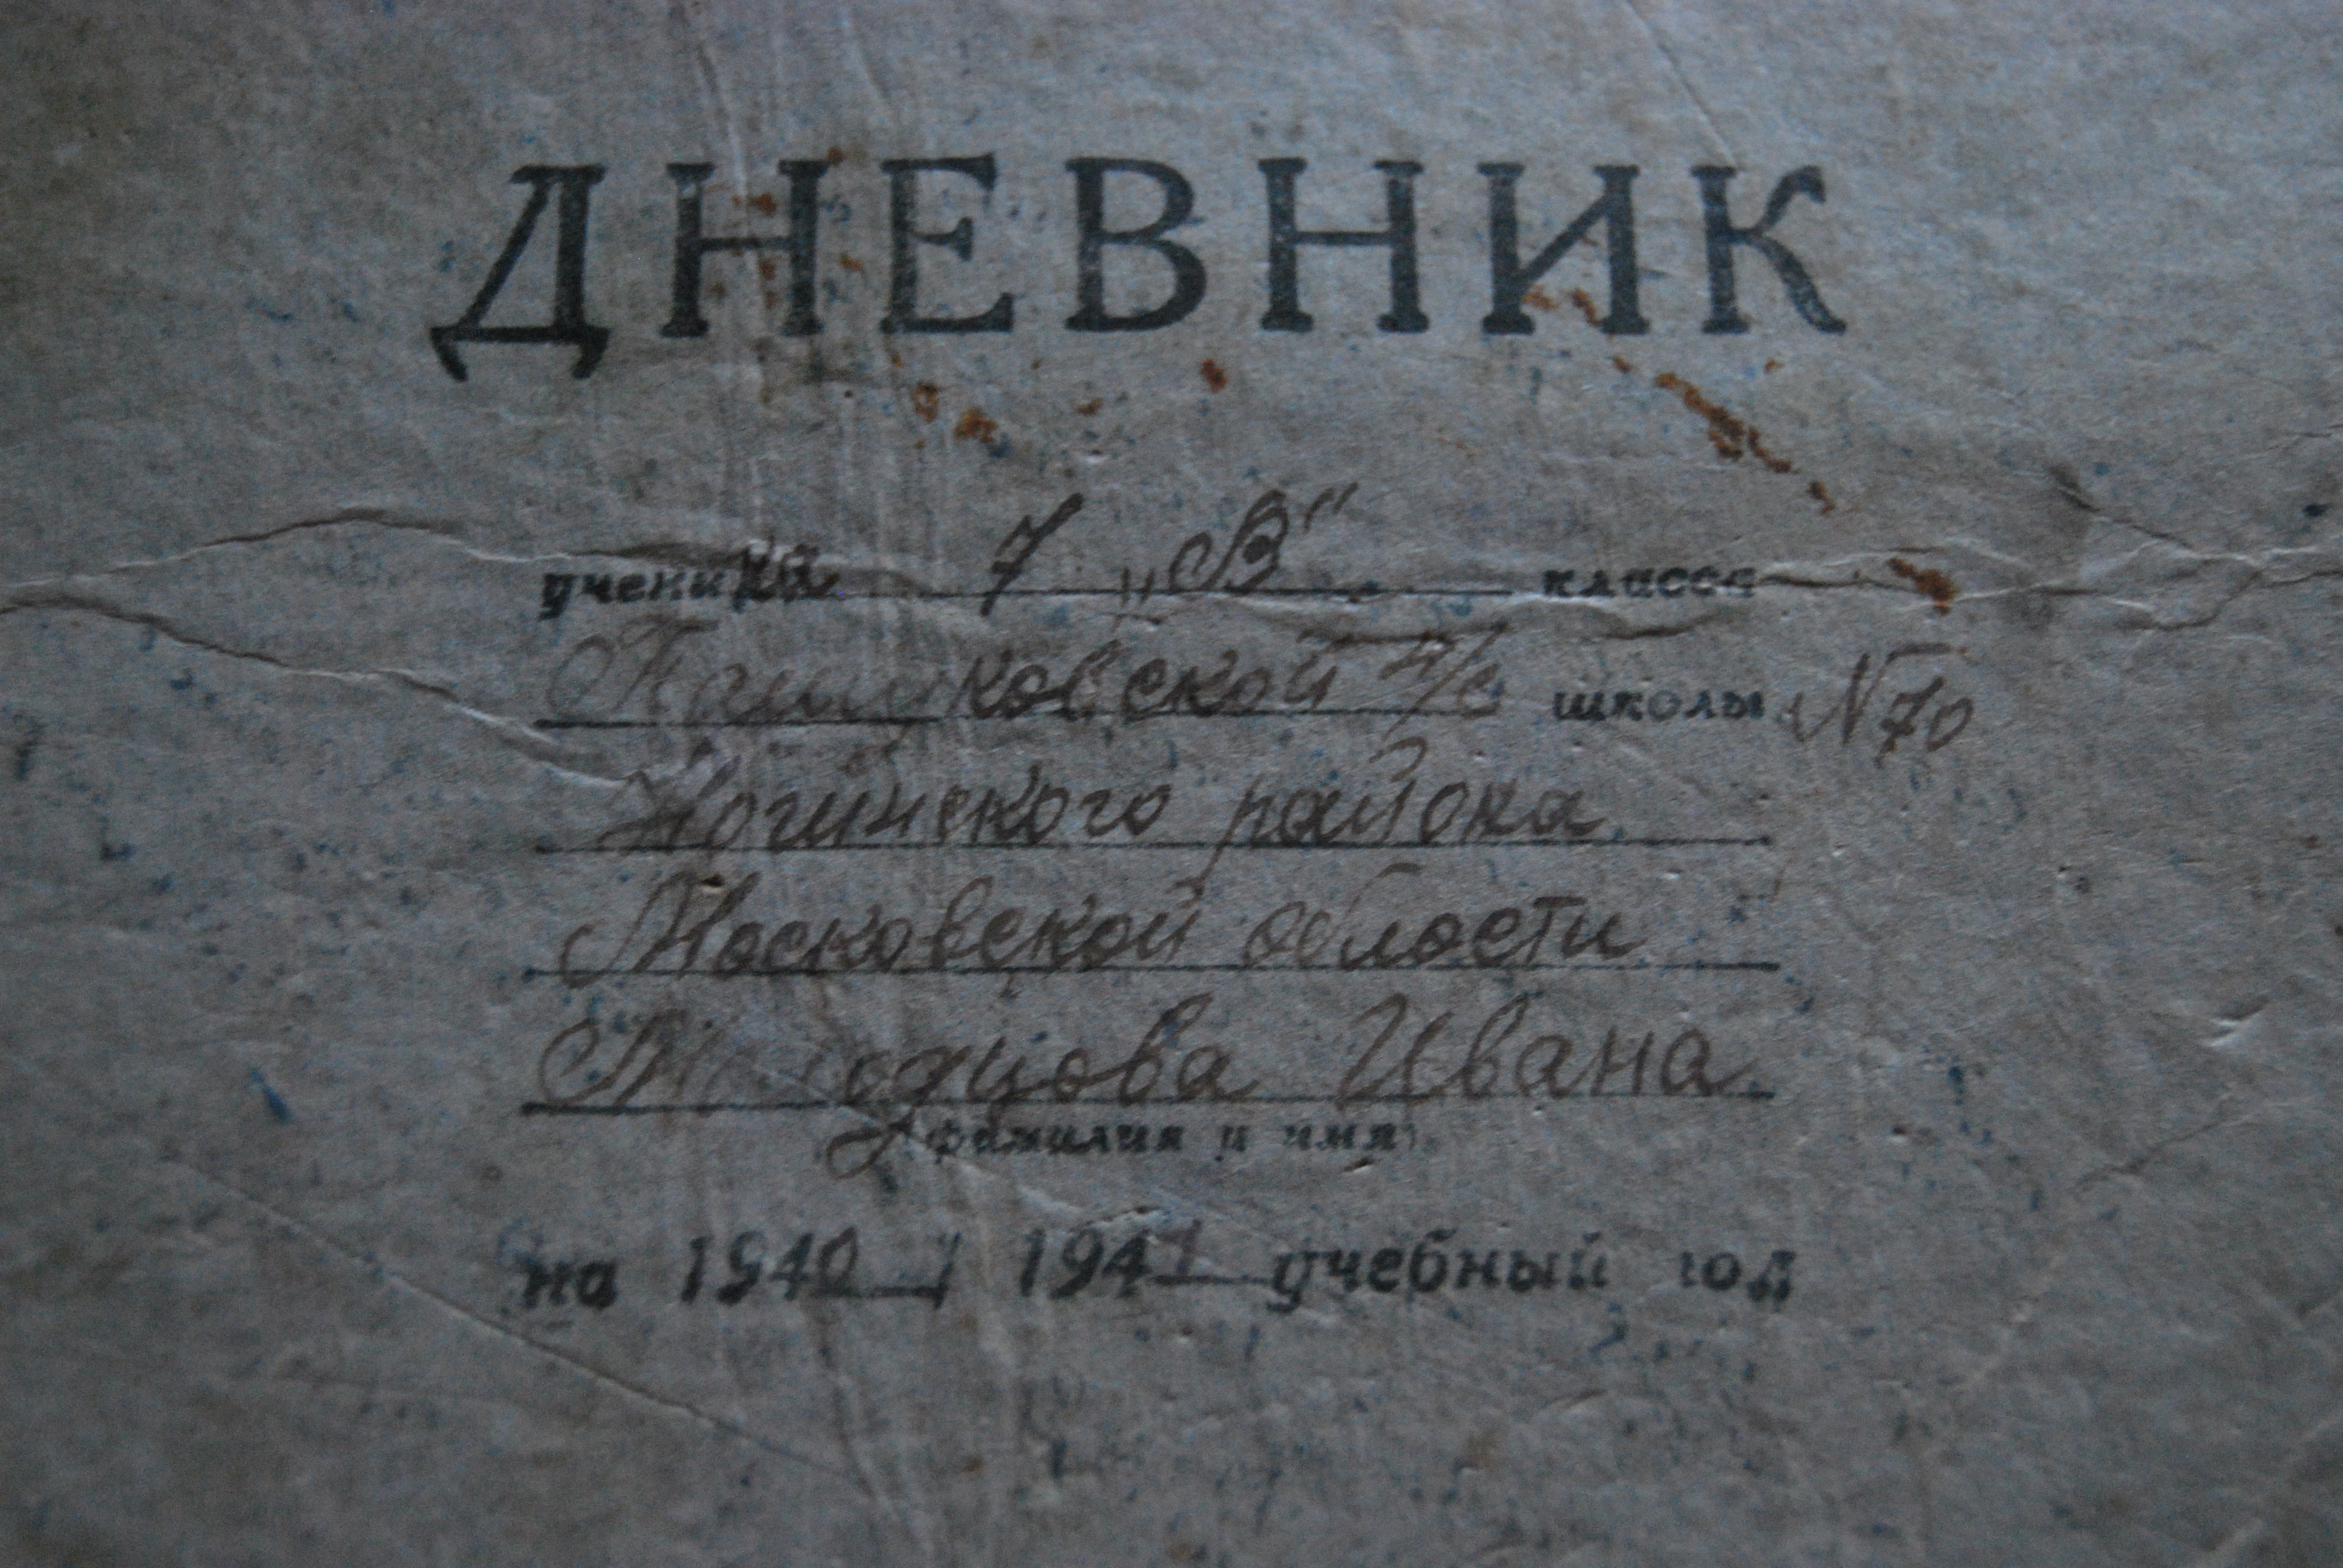 ДНЕВНИК
ученика 7 „В" класса
Пашуковской н/с школы N 70
Ногинского района
Московской области
Молодцова Ивана
(фамилия и имя)
на 1940 / 1941 учебный год